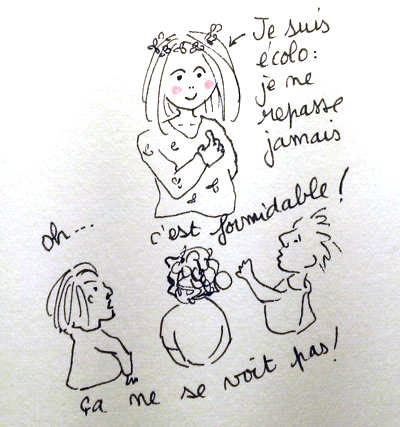 Je suis
écolo:
je ne
repasse
jamais
oh...
c'est formidable!
ça ne se voit pas!